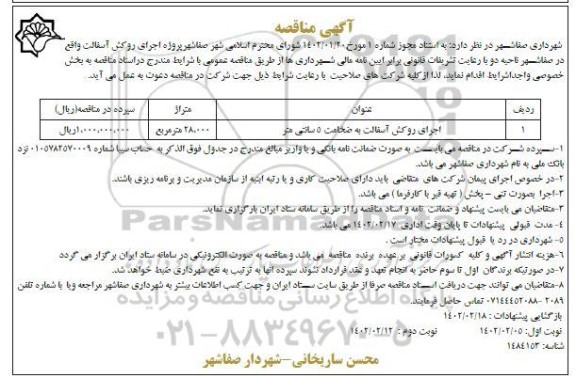 آگهی مناقصه
شهرداری صفاشهر در نظر دارد: به استناد مجوز شماره ۱ مورخ ۱۴۰۲/۰۱/۲۰ شورای محترم اسلامی شهر صفاشهر پروژه اجرای روکش آسفالت واقع
در صفاشهر ناحیه دو با رعایت تشریفات قانونی برابر آیین نامه مالی شهرداری ها از طریق مناقصه عمومی با شرایط مندرج در اسناد مناقصه به بخش
خصوصی واجدالشرایط اقدام نماید، لذا از کلیه شرکت های صلاحیت با رعایت شرایط ذیل جهت شرکت در مناقصه دعوت به عمل می آید.
ردیف عنوان متراژ سپرده در مناقصه(ریال)
۱ اجرای روکش آسفالت به ضخامت ۵ سانتی متر ۲۸،۰۰۰ مترمربع ۱،۰۰۰،۰۰۰،۰۰۰ریال
۱-سپرده شرکت در مناقصه می بایست به صورت ضمانت نامه بانکی و یا واریز مبالغ مندرج در جدول فوق الذکر به حساب سیبا شماره ۰۱۰۵۷۸۲۵۷۰۰۰۹ نزد
بانک ملی به نام شهرداری صفاشهر می باشد.
۲-در خصوص اجرای پیمان شرکت های متقاضی باید دارای صلاحیت کاری و یا رتبه ابنیه از سازمان مدیریت و برنامه ریزی باشند.
۳-اجرا بصورت تنی – پخش ( تهیه قیر با کارفرما ) می باشد.
۳-متقاضیان می بایست پیشنهاد و ضمانت نامه و اسناد مناقصه را از طریق سامانه ستاد ایران بارگزاری نماید.
۴- مدت قبولی پیشنهادات تا پایان وقت اداری ۱۴۰۲/۰۲/۱۷ می باشد.
۵- شهرداری در رد یا قبول پیشنهادات مختار است .
۶-هزینه انتشار آگهی و کلیه کسورات قانونی بر عهده برنده مناقصه می باشد و مناقصه به صورت الکترونیکی در سامانه ستاد ایران برگزار می گردد
۷-در صورتیکه برندگان اول تا سوم حاضر به انجام تعهد و عقد قرارداد نشوند سپرده آنها به ترتیب به نفع شهرداری ضبط خواهد شد.
۸-متقاضیان می توانند جهت دریافت اسناد مناقصه صرفا از طریق سایت ستاد ایران و جهت کسب اطلاعات بیشتر به شهرداری صفاشهر مراجعه و یا با شماره تلفن
۲۰۸۹ -۰۷۱۴۴۴۵۲۰۸۸ تماس حاصل فرمایند.
بازگشایی پیشنهادات : ۱۴۰۲/۰۲/۱۸
نوبت اول: ۱۴۰۲/۰۲/۰۵ نوبت دوم : ۱۴۰۲/۰۲/۱۲
شناسه: ۱۴۸۴۱۵۳
محسن ساریخانی-شهردار صفاشهر
ParsNamadData
۰۲۱-۸۸۳۴۹۶۷۰-۵